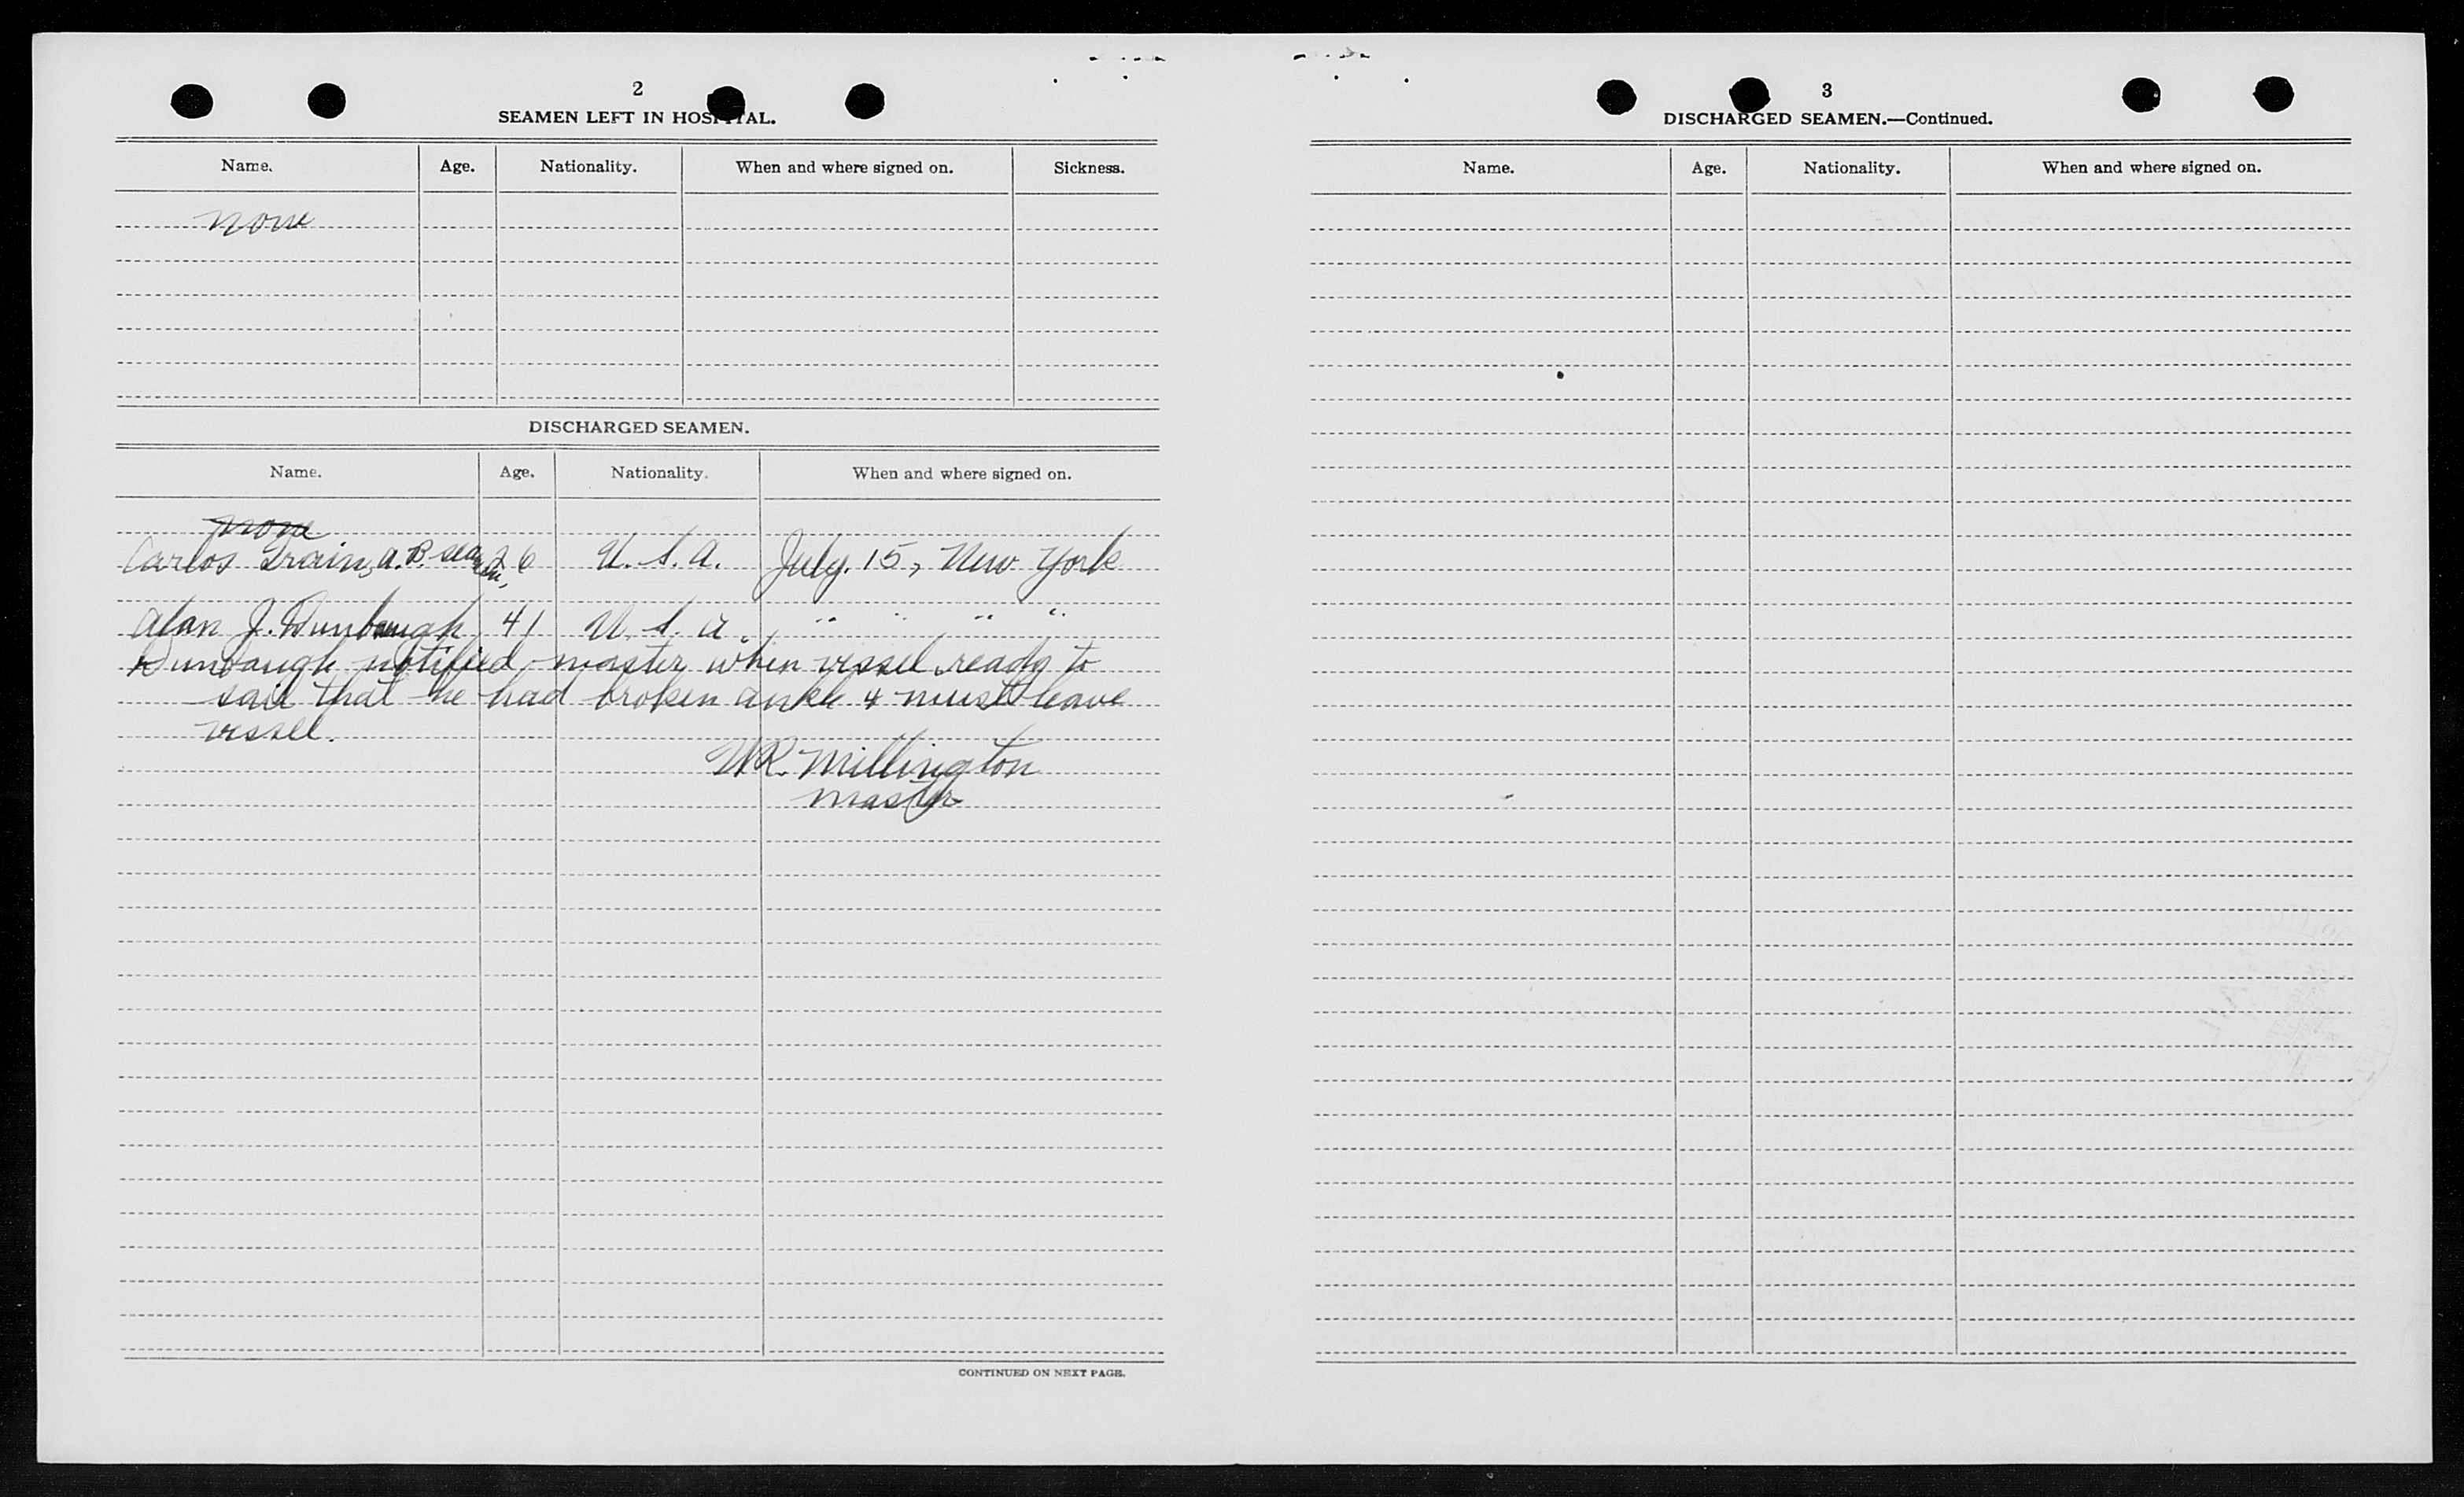 2
SEAMEN LEFT IN HOSPITAL.
Name. Age. Nationality. When and where signed on. Sickness.
None
DISCHARGED SEAMEN.
Name. Age. Nationality. When and where signed on.
None
Carlos Train, A.B. seaman, 26 U.S.A. July. 15, New York
Alan J. Dunbaugh 41 U.S.A. " " " "
Dunbaugh notified master when vessel ready to
sail that he had broken ankle & must leave
vessel.
W.R. Millington
Master
CONTINUED ON NEXT PAGE.
3
DISCHARGED SEAMEN.—Continued.
Name. Age. Nationality. When and where signed on.